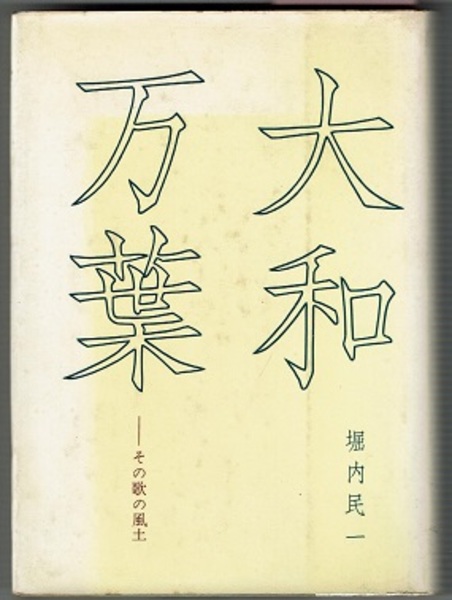 大和
万葉
——その歌の風土
堀内民一